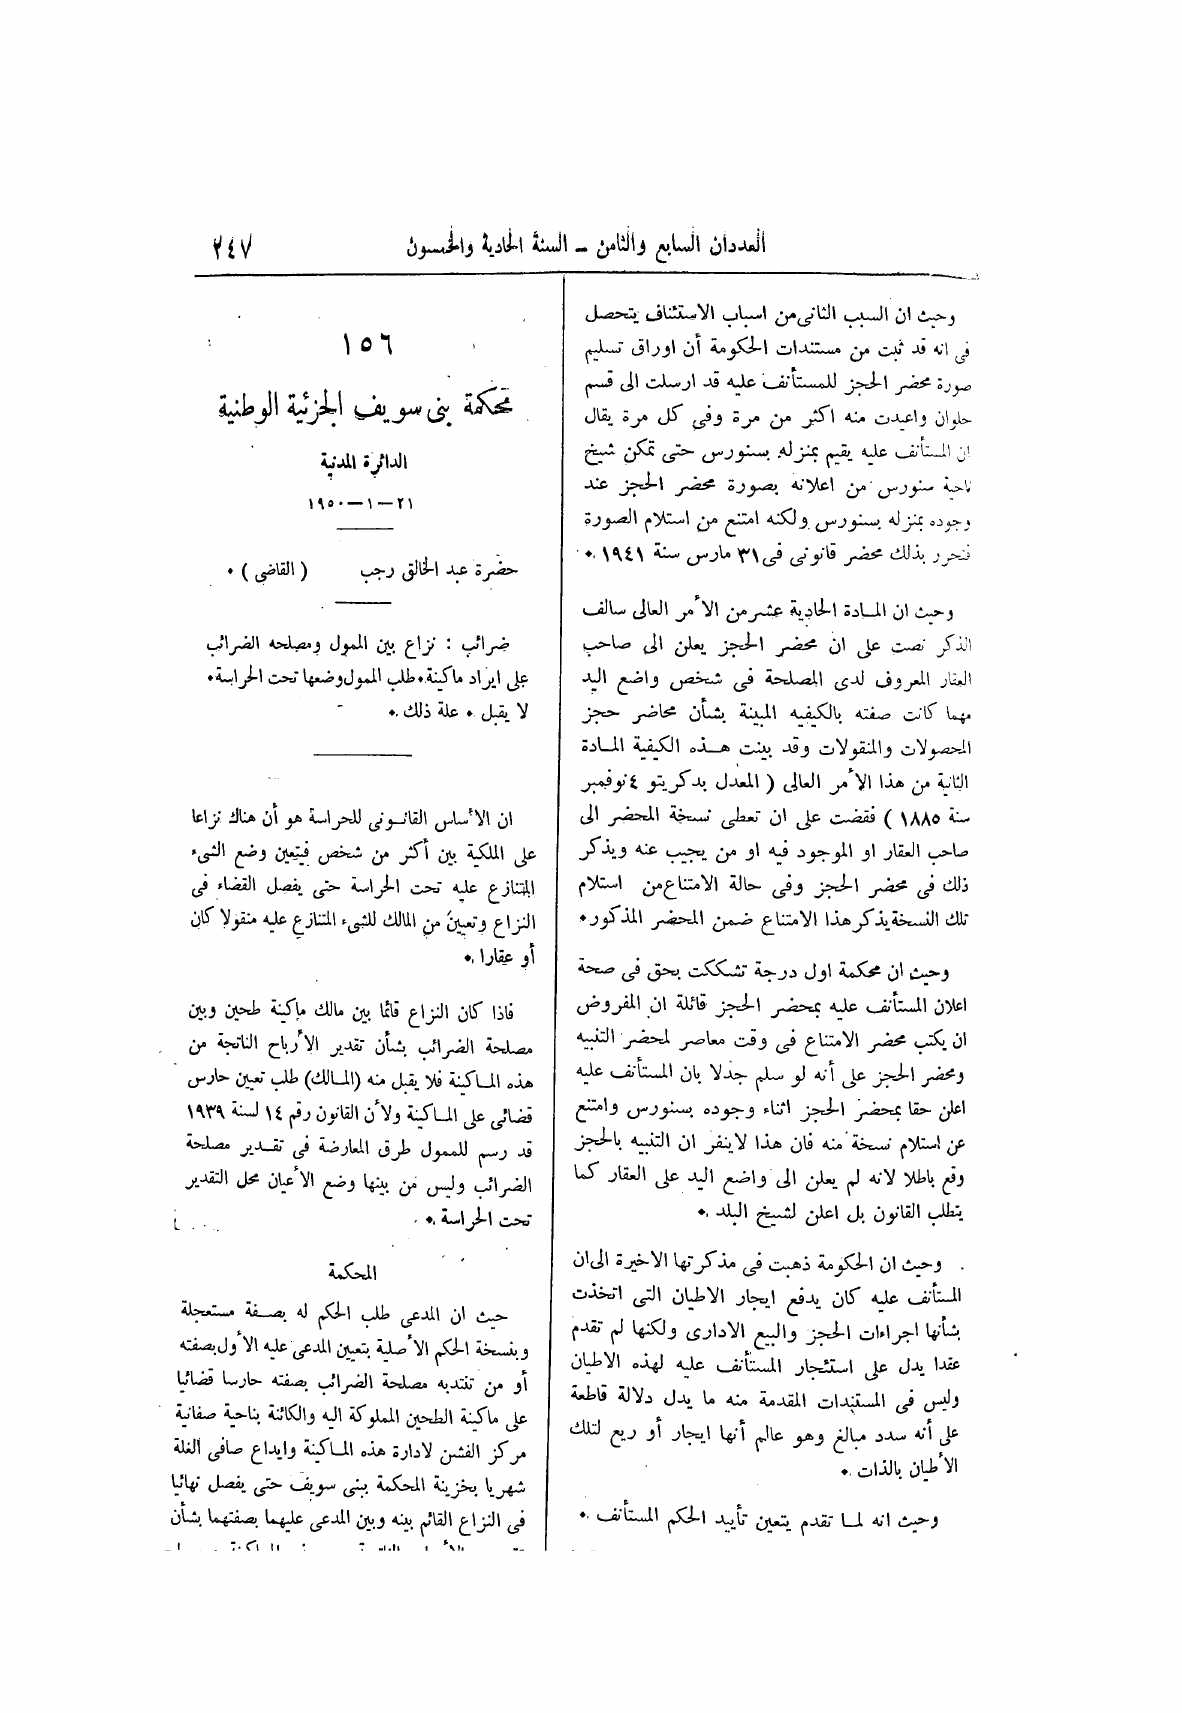 العددان السابع والثامن – السنة الحادية والخمسون
٢٤٧
وحيث ان السبب الثانى من اسباب الاستئناف يتحصل
فى انه قد ثبت من مستندات الحكومة أن اوراق تسليم
صورة محضر الحجز للمستأنف عليه قد ارسلت الى قسم
حلوان واعيدت منه اكثر من مرة وفى كل مرة يقال
ان المستأنف عليه يقيم بمنزله بسنورس حتى تمكن شيخ
ناحية سنورس من اعلانه بصورة محضر الحجز عند
وجوده بمنزله بسنورس ولكنه امتنع من استلام الصورة
فتحرر بذلك محضر قانونى فى ٣١ مارس سنة ١٩٤١ .
وحيث ان المادة الحادية عشر من الأمر العالى سالف
الذكر نصت على ان محضر الحجز يعلن الى صاحب
العقار المعروف لدى المصلحة فى شخص واضع اليد
مهما كانت صفته بالكيفيه المبينة بشأن محاضر حجز
المحصولات والمنقولات وقد بينت هذه الكيفية المادة
الثانية من هذا الأمر العالى ( المعدل بدكريتو ٤ نوفمبر
سنة ١٨٨٥ ) فقضت على ان تعطى نسخة المحضر الى
صاحب العقار او الموجود فيه او من يجيب عنه ويذكر
ذلك فى محضر الحجز وفى حالة الامتناع من استلام
تلك النسخة يذكر هذا الامتناع ضمن المحضر المذكور .
وحيث ان محكمة اول درجة تشككت بحق فى صحة
اعلان المستأنف عليه بمحضر الحجز قائلة ان المفروض
ان يكتب محضر الامتناع فى وقت معاصر لمحضر التنبيه
ومحضر الحجز على أنه لو سلم جدلا بان المستأنف عليه
اعلن حقا بمحضر الحجز اثناء وجوده بسنورس وامتنع
عن استلام نسخة منه فان هذا لاينفر ان التنبيه بالحجز
وقع باطلا لانه لم يعلن الى واضع اليد على العقار كما
يتطلب القانون بل اعلن لشيخ البلد .
وحيث ان الحكومة ذهبت فى مذكرتها الاخيرة الى ان
المستأنف عليه كان يدفع ايجار الاطيان التى اتخذت
بشأنها اجراءات الحجز والبيع الادارى ولكنها لم تقدم
عقدا يدل على استئجار المستأنف عليه لهذه الاطيان
وليس فى المستندات المقدمة منه ما يدل دلالة قاطعة
على أنه سدد مبالغ وهو عالم أنها ايجار أو ريع لتلك
الأطيان بالذات .
وحيث انه لما تقدم يتعين تأييد الحكم المستأنف .
١٥٦
محكمة بنى سويف الجزئية الوطنية
الدائرة المدنية
٢١–١–١٩٥٠
حضرة عبد الخالق رجب ( القاضى ) .
ضرائب : نزاع بين الممول ومصلحه الضرائب
على ايراد ماكينة . طلب الممول وضعها تحت الحراسة .
لا يقبل . علة ذلك .
ان الأساس القانونى للحراسة هو أن هناك نزاعا
على الملكية بين أكثر من شخص فيتعين وضع الشىء
المتنازع عليه تحت الحراسة حتى يفصل القضاء فى
النزاع وتعيين من المالك للشىء المتنازع عليه منقولا كان
أو عقارا .
فاذا كان النزاع قائما بين مالك ماكينة طحين وبين
مصلحة الضرائب بشأن تقدير الأرباح الناتجة من
هذه الماكينة فلا يقبل منه (المالك) طلب تعيين حارس
قضائى على الماكينة ولأن القانون رقم ١٤ لسنة ١٩٣٩
قد رسم للممول طرق المعارضة فى تقدير مصلحة
الضرائب وليس من بينها وضع الأعيان محل التقدير
تحت الحراسة .
المحكمة
حيث ان المدعى طلب الحكم له بصفة مستعجلة
وبنسخة الحكم الأصلية بتعيين المدعى عليه الأول بصفته
أو من تنتدبه مصلحة الضرائب بصفته حارسا قضائيا
على ماكينة الطحين المملوكة اليه والكائنة بناحية صفانية
مركز الفشن لادارة هذه الماكينة وايداع صافى الغلة
شهريا بخزينة المحكمة ببنى سويف حتى يفصل نهائيا
فى النزاع القائم بينه وبين المدعى عليهما بصفتهما بشأن